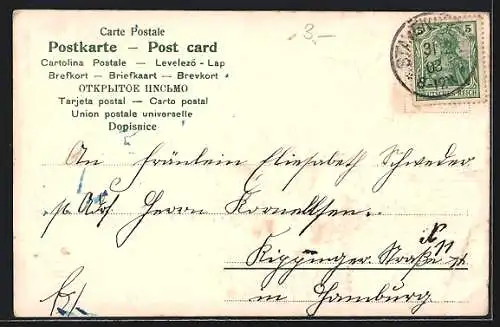 Carte Postale
Postkarte — Post card
Cartolina Postale — Levelező - Lap
Brefkort — Briefkaart — Brevkort
ОТКРЫТОЕ ПИСЬМО
Tarjeta postal — Carto postal
Union postale universelle
Dopisnice
3.-
5
31
02
DEUTSCHES REICH
An Fräulein Elisabeth Schweder
p. Adr. Herrn Kornelssen.
Kippinger Straße 11
in Hamburg